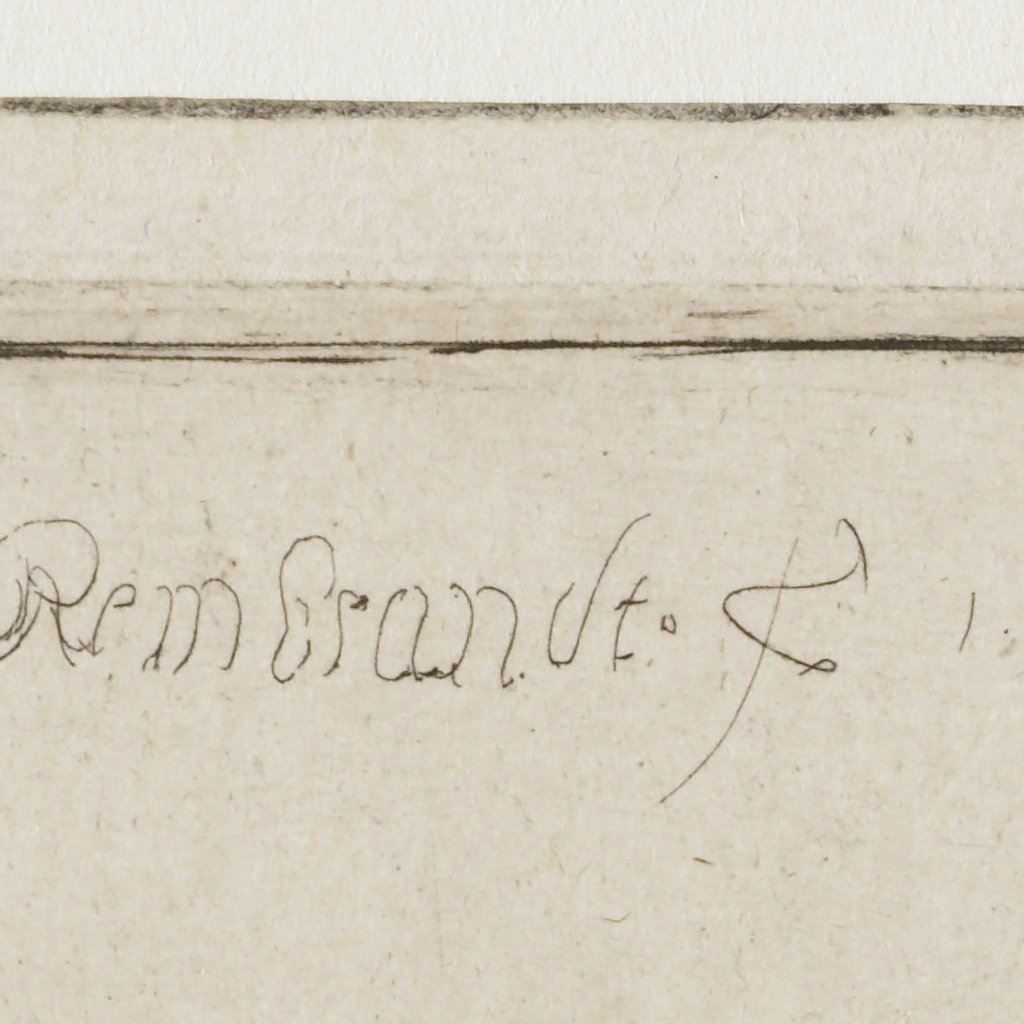 Rembrandt. f 1